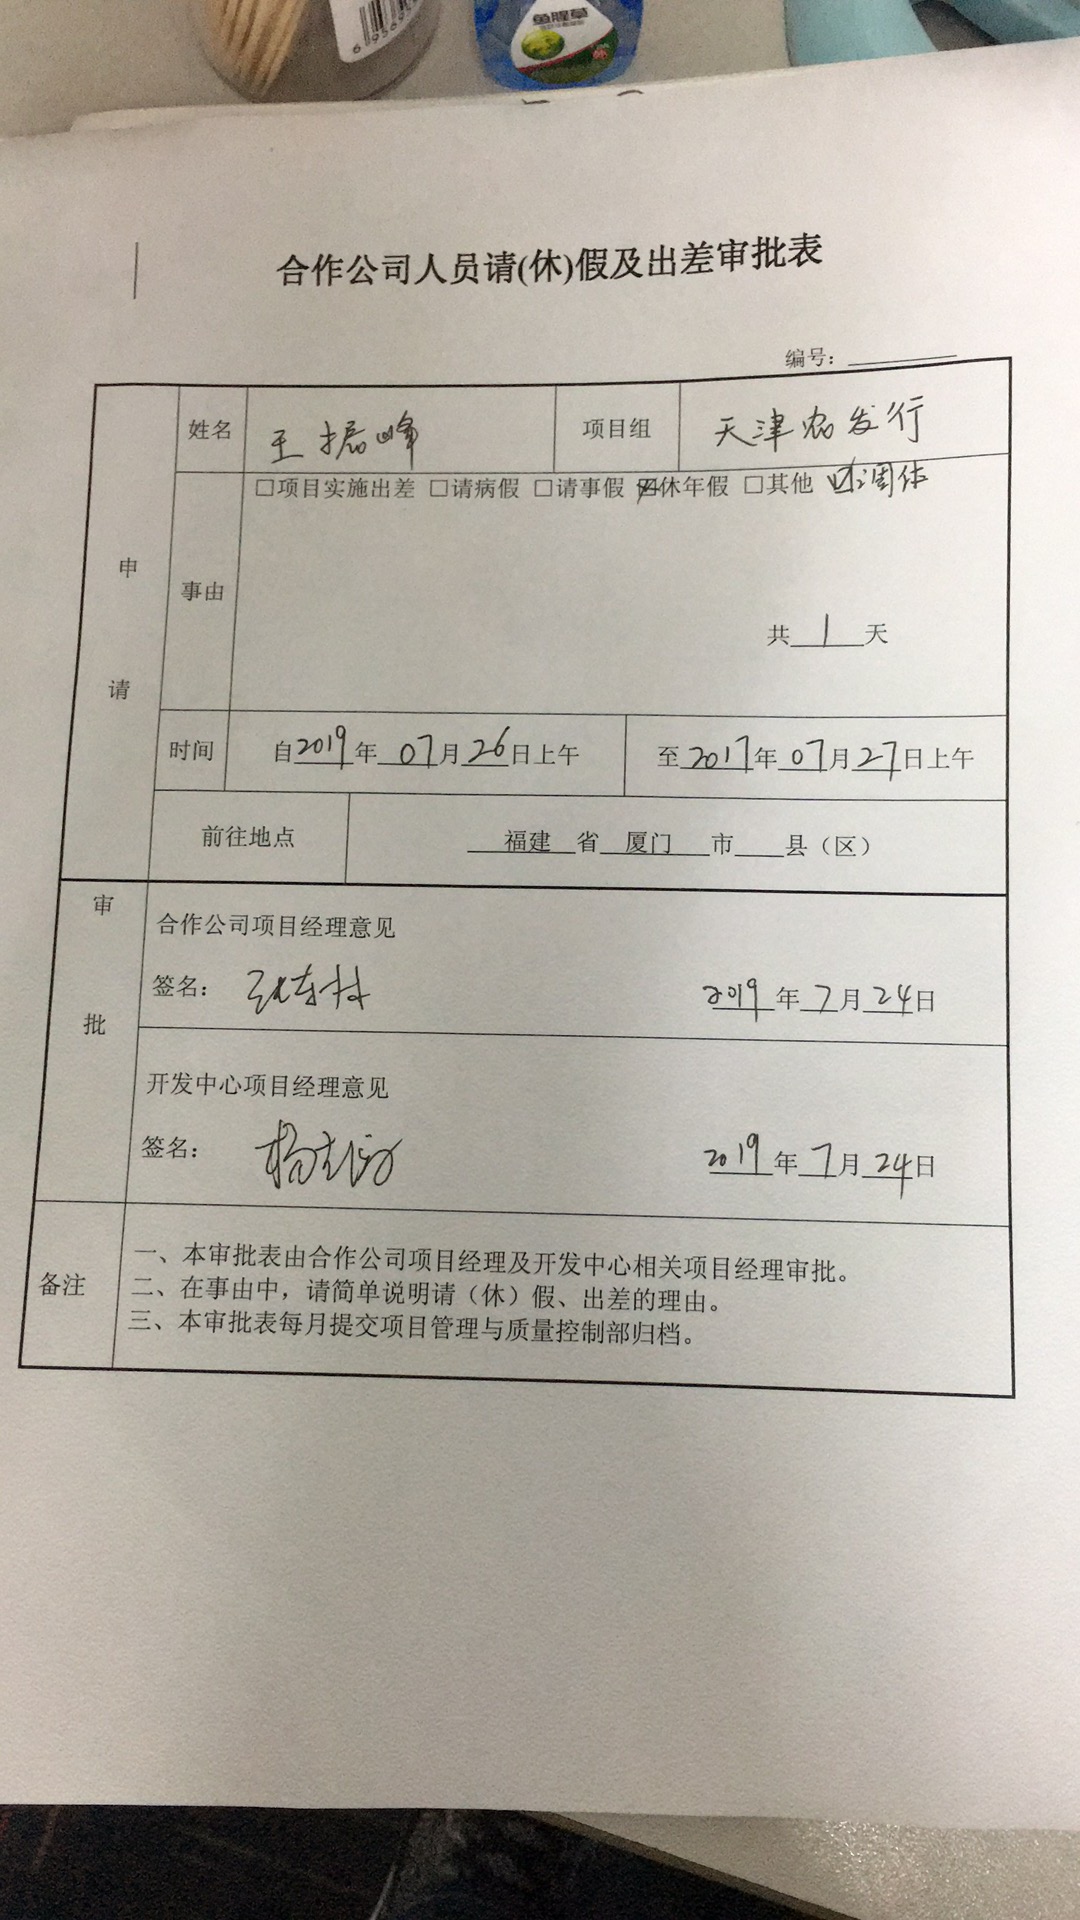 鱼腥草
合作公司人员请(休)假及出差审批表
编号：
申请
姓名 王振峰 项目组 天津农发行
事由 □项目实施出差 □请病假 □请事假 ☑休年假 □其他 ☑调休
共 1 天
时间 自2019年 07月 26日上午 至 2017年 07月 27日上午
前往地点 福建 省 厦门 市 县（区）
审批
合作公司项目经理意见
签名： 2019 年 7 月 24日
开发中心项目经理意见
签名： 2019 年 7 月 24日
备注
一、本审批表由合作公司项目经理及开发中心相关项目经理审批。
二、在事由中，请简单说明请（休）假、出差的理由。
三、本审批表每月提交项目管理与质量控制部归档。